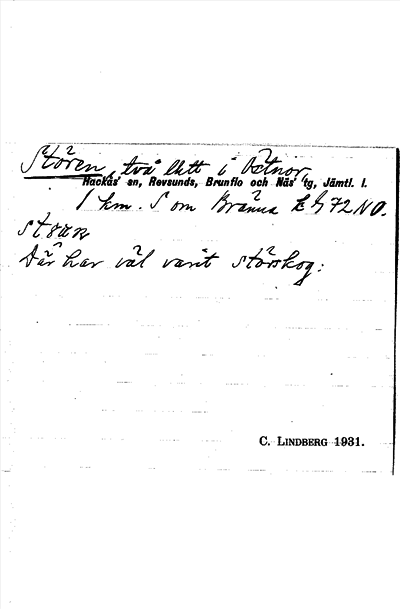 Stören, två lltt i Östnor,
Hackås' sn, Revsunds, Brunflo och Näs' tg, Jämtl. l.
1 km. S om Bränna 72 NO.
Där har väl varit störskog.
C. LINDBERG 1931.